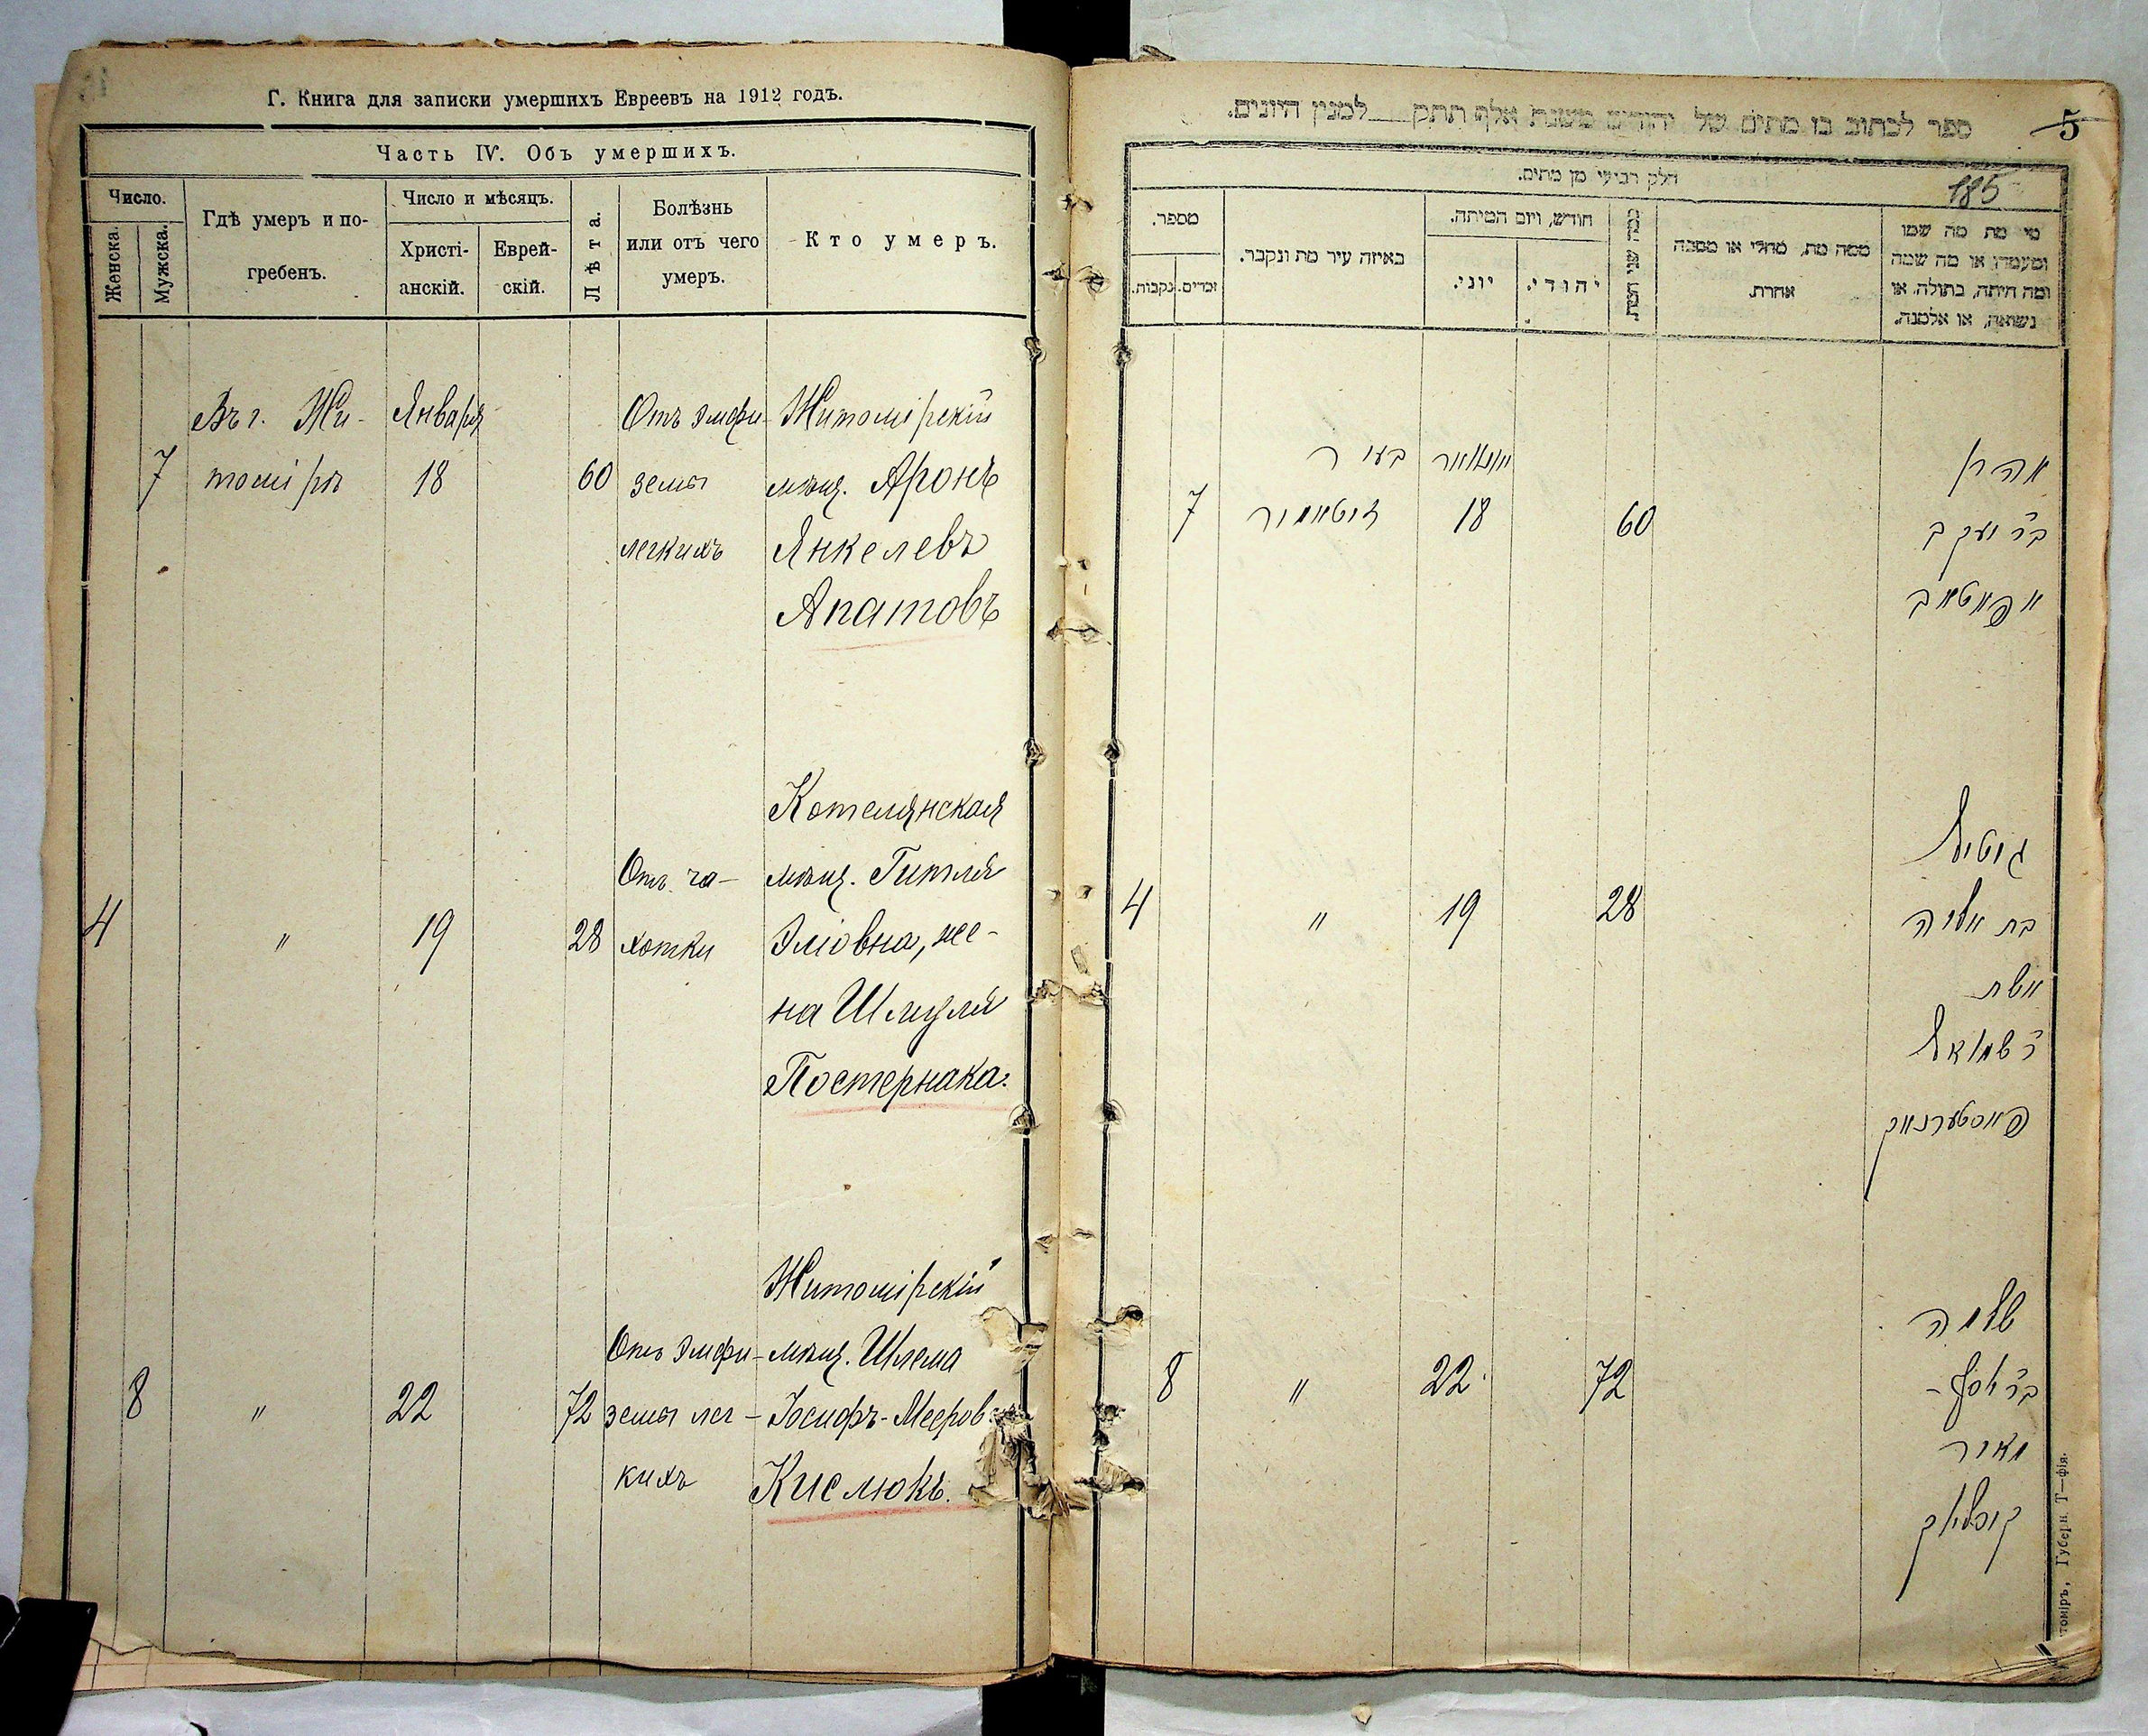 Г. Книга для записки умершихъ Евреевъ на 1912 годъ.
Часть IV. Объ умершихъ.
Число.
Женска.
Мужска.
Гдѣ умеръ и по-
гребенъ.
Число и мѣсяцъ.
Христі-
анскій.
Еврей-
скій.
Лѣта.
Болѣзнь
или отъ чего
умеръ.
Кто умеръ.
Въ г. Жи- Января Отъ эмфи- Житомірскій
7 томірѣ 18 60 земы мѣщ. Аронъ
легкихъ Янкелевъ
Апатовъ
Котелянская
Отъ ча- мѣщ. Гитля
4 " 19 28 хотки Эліовна, же-
на Шмуля
Постернака.
Житомірскій
Отъ эмфи- мѣщ. Шлема
8 " 22 72 земы лег- Іосифъ-Мееров
кихъ Кислюкъ.
ספר לכתוב בו מתים של יהודים משנת אלף תתק למנין היונים.
5
185
חלק רביעי מן מתים.
מספר.
נקבות.
זכרים.
באיזה עיר מת ונקבר.
חודש, ויום המיתה.
יוני.
יהודי.
כמה שני המת.
ממה מת, מחלי או מסבה
אחרת.
מי מת מה שמו
ומעמדו, או מה שמה
ומה היתה, בתולה, או
נשואה, או אלמנה.
בעיר יאנואר אהרן
7 זיטאמיר 18 60 בר יעקב
אפאטאב
גיטיל
4 " 19 28 בת אליה
אשת
ר שמואל
פאסטערנאק
שלמה
8 " 22 72 בר יוסף-
מאיר
קיסליוק
томіръ, Губерн. Т—фія.